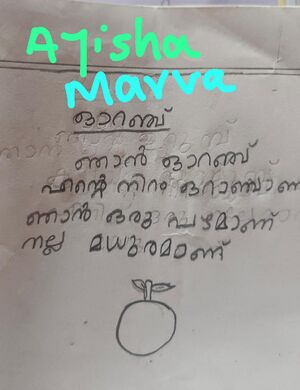 Ayisha
Marva
ഓറഞ്ച്
ഞാൻ ഓറഞ്ച്
എന്റെ നിറം ഓറഞ്ചാണ്
ഞാൻ ഒരു പഴമാണ്
നല്ല മധുരമാണ്